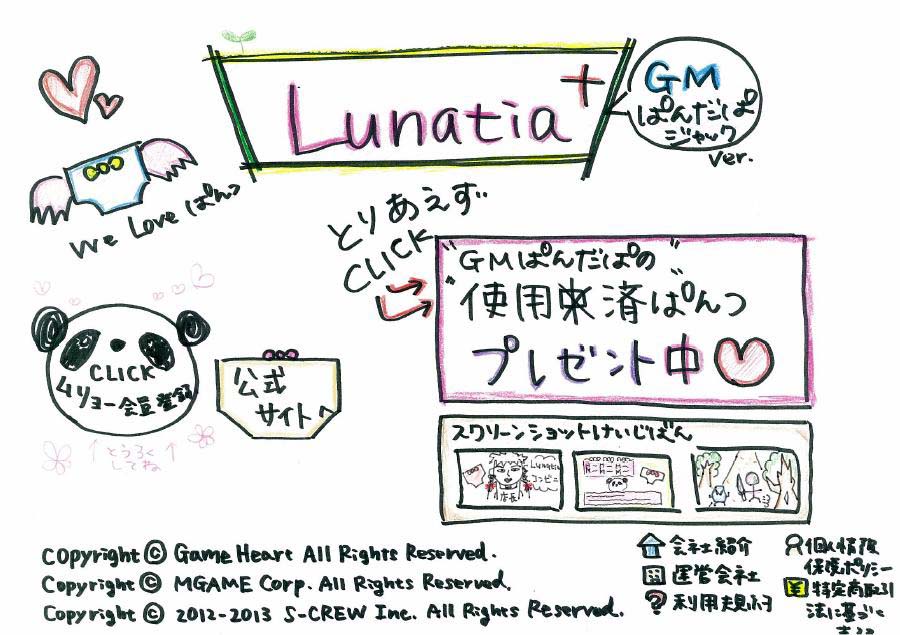 Lunatia+
GM
ぱんだぱ
ジャック
ver.
We Love ぱんつ
とりあえず
CLICK
"GMぱんだぱの"
使用未済ぱんつ
プレゼント中
CLICK
ムリョー会員登録
↑とうろく↑
してね
公式
サイトへ
スクリーンショットけいじばん
Lunatia
コンビニ
店長
Copyright © Game Heart All Rights Reserved.
Copyright © MGAME Corp. All Rights Reserved.
Copyright © 2012-2013 S-CREW Inc. All Rights Reserved.
会社紹介
運営会社
? 利用規約
個人情報
保護ポリシー
¥ 特定商取引
法に基づく